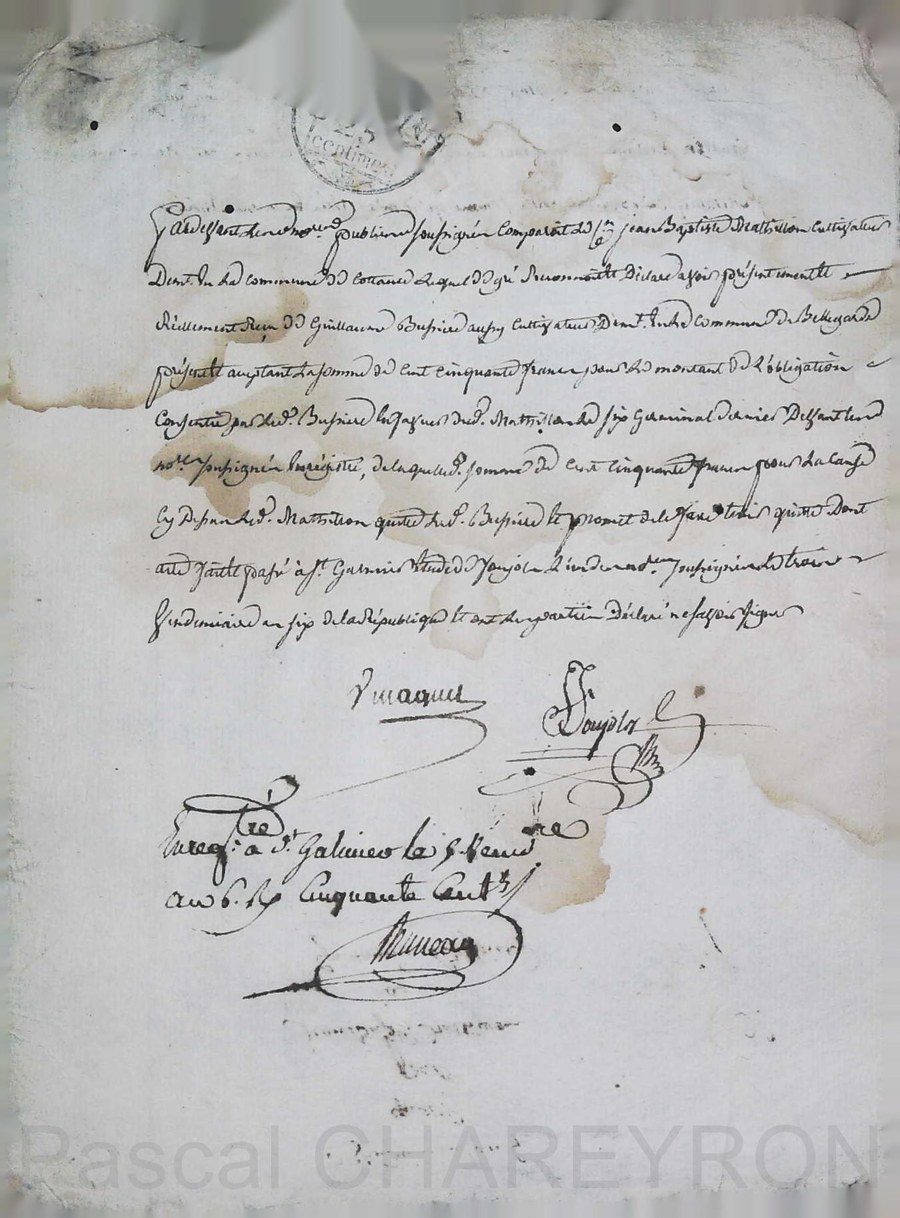 25
centimes
Pardessant les no.res publicns soussignés Comparait le C.en jean Baptiste Mathillon Cultivateur
Dem.t En La commune de Cottance Lequel de gré Reconnoit Et Déclare avoir présentement Et
Réellement Reçu de Guillaume Bussiere aussy Cultivateur Dem.t En La Commune de Bellegarde
présent Et acceptant La somme de Cent Cinquante francs pour Le montant de L'obligation
Consentie par Led. Bussiere En faveur dud. Mathillon Le six Germinal dernier Dessant Les
no.res soussignés Enregistré, de laquelle d. somme de Cent Cinquante francs pour La Cause
Cy Dessus Led. Mathillon quitte Led. Bussiere Et promet de le faire tenir quitte Dont
acte fait Et passé à S.t Galmier Etude de Soujola L'un des no.res soussignés Le trois
Vendemiaire an six de la République Et ont Les parties Déclaré ne sçavoir signer
Soujola
Enreg.tré à S.t Galmier le 5 Vend.re
an 6. Rç Cinquante Cent.s
Pascal CHAREYRON